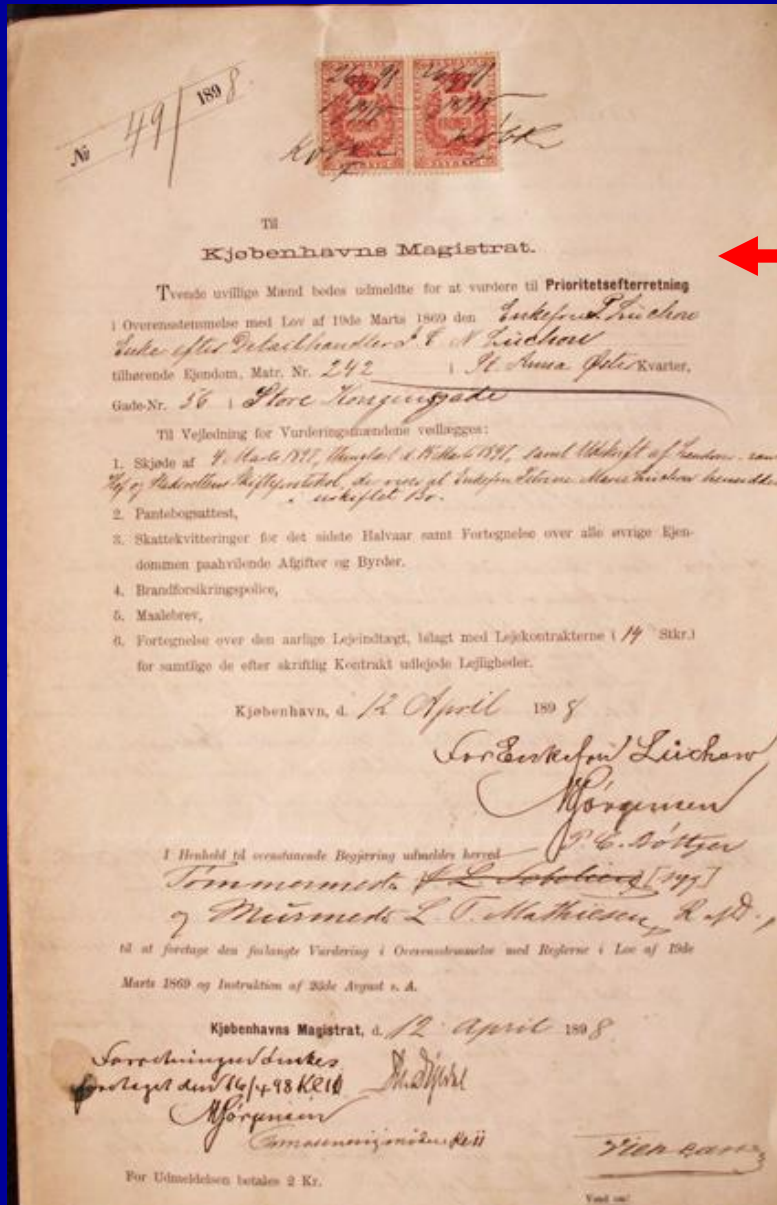 № 49 / 1898
26/4 98
Til
Kjøbenhavns Magistrat.
Tvende uvillige Mænd bedes udmeldte for at vurdere til Prioritetsefterretning
i Overensstemmelse med Lov af 19de Marts 1869 den Enkefru P. Lüchow
Enke efter Detailhandler J. C. N. Lüchow
tilhørende Ejendom, Matr. Nr. 242 i St. Anna Øster Kvarter,
Gade-Nr. 56 i Store Kongensgade
Til Vejledning for Vurderingsmændene vedlægges:
1. Skjøde af 4. Marts 1897, thinglæst d. 15 Marts 1897, samt Udskrift af Landsover- samt
Hof og Stadsrettens Skifteprotokol, der viser at Enkefru Petrine Marie Lüchow hensidder
i uskiftet Bo.
2. Pantebogsattest,
3. Skattekvitteringer for det sidste Halvaar samt Fortegnelse over alle øvrige Ejen-
dommen paahvilende Afgifter og Byrder.
4. Brandforsikringspolice,
5. Maalebrev,
6. Fortegnelse over den aarlige Lejeindtægt, bilagt med Lejekontrakterne (14 Stkr.)
for samtlige de efter skriftlig Kontrakt udlejede Lejligheder.
Kjøbenhavn, d. 12 April 1898
For Enkefru Lüchow
Jørgensen
P. C. Bøttger
I Henhold til ovenstaaende Begjæring udmeldes herved
Tømmermester [syg]
og Murmester L. T. Mathiesen, R. af D.
til at foretage den forlangte Vurdering i Overensstemmelse med Reglerne i Lov af 19de
Marts 1869 og Instruktion af 25de Avgust s. A.
Kjøbenhavns Magistrat, d. 12 April 1898
Forretningen ønskes
foretaget den 16/4 98 Kl 11
Jørgensen
For Udmeldelsen betales 2 Kr.
Vend om!